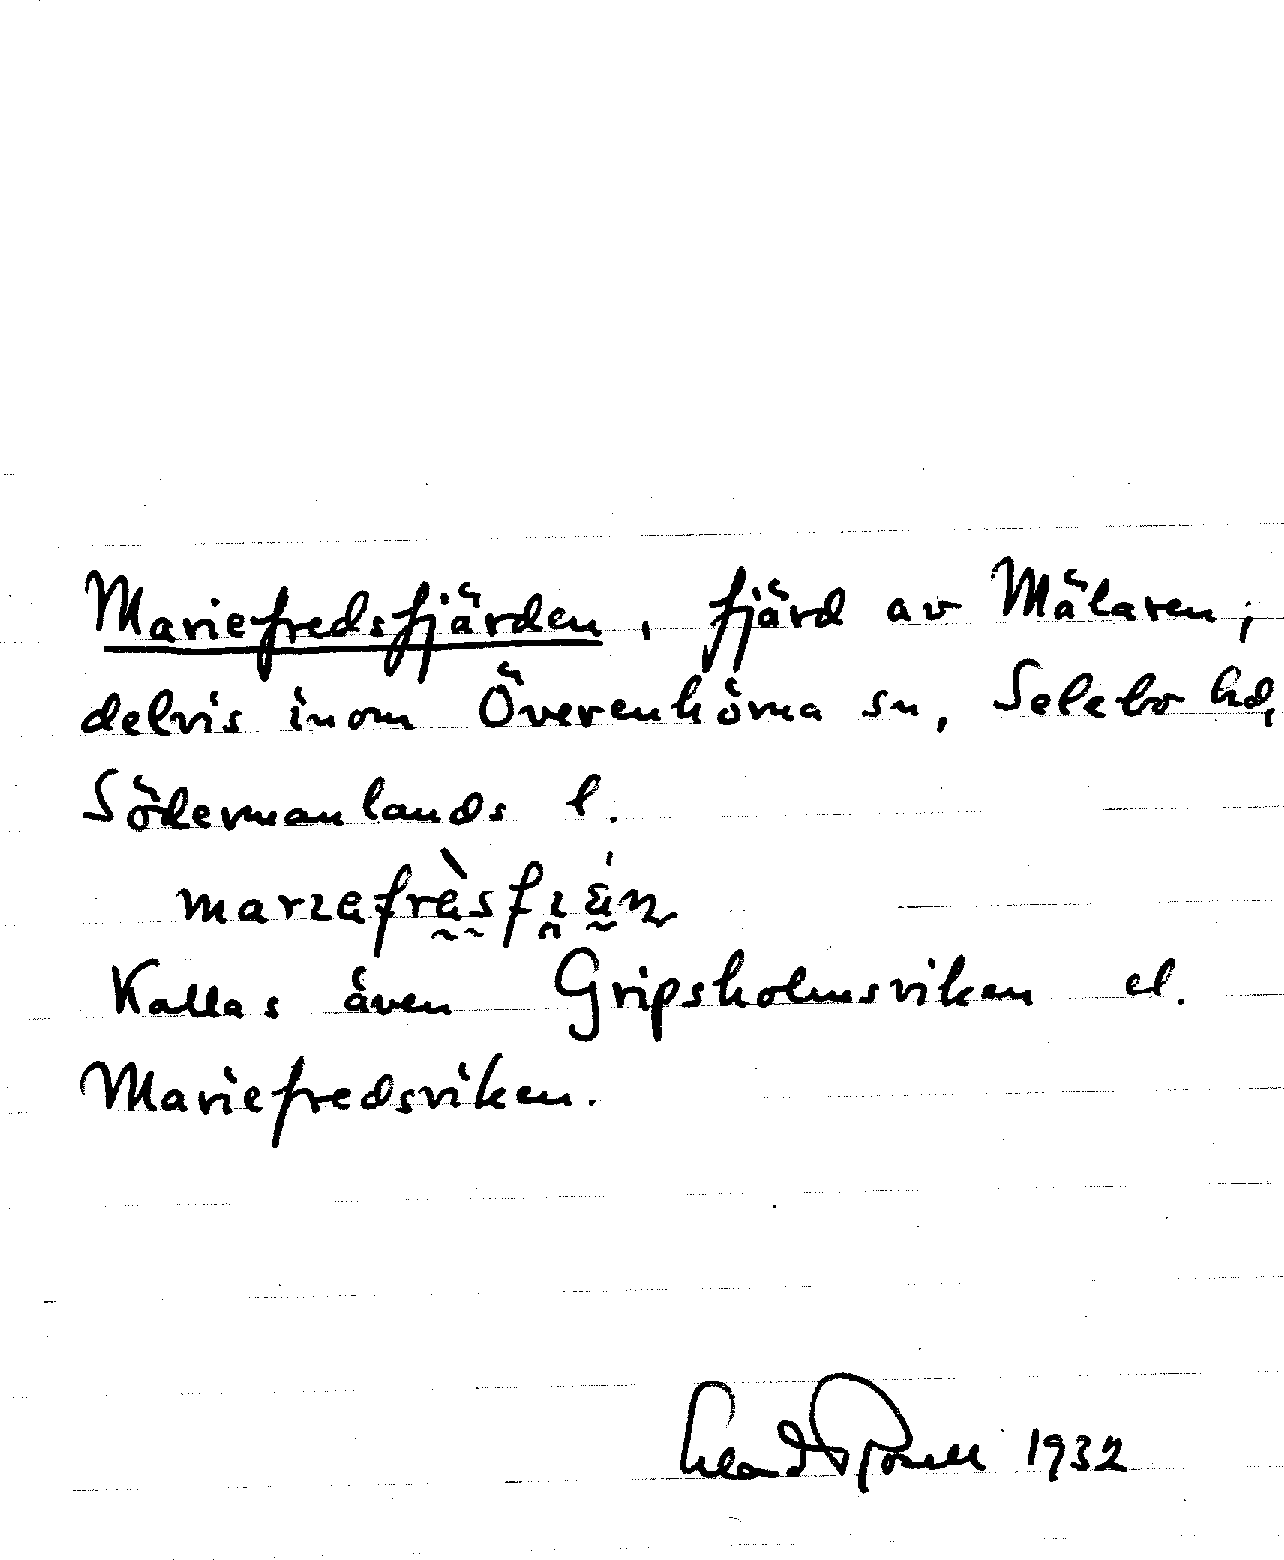 Mariefredsfjärden, fjärd av Mälaren;
delvis inom Överenhörna sn, Selebo hd,
Södermanlands l.
Kallas även Gripsholmsviken el.
Mariefredsviken.
1932